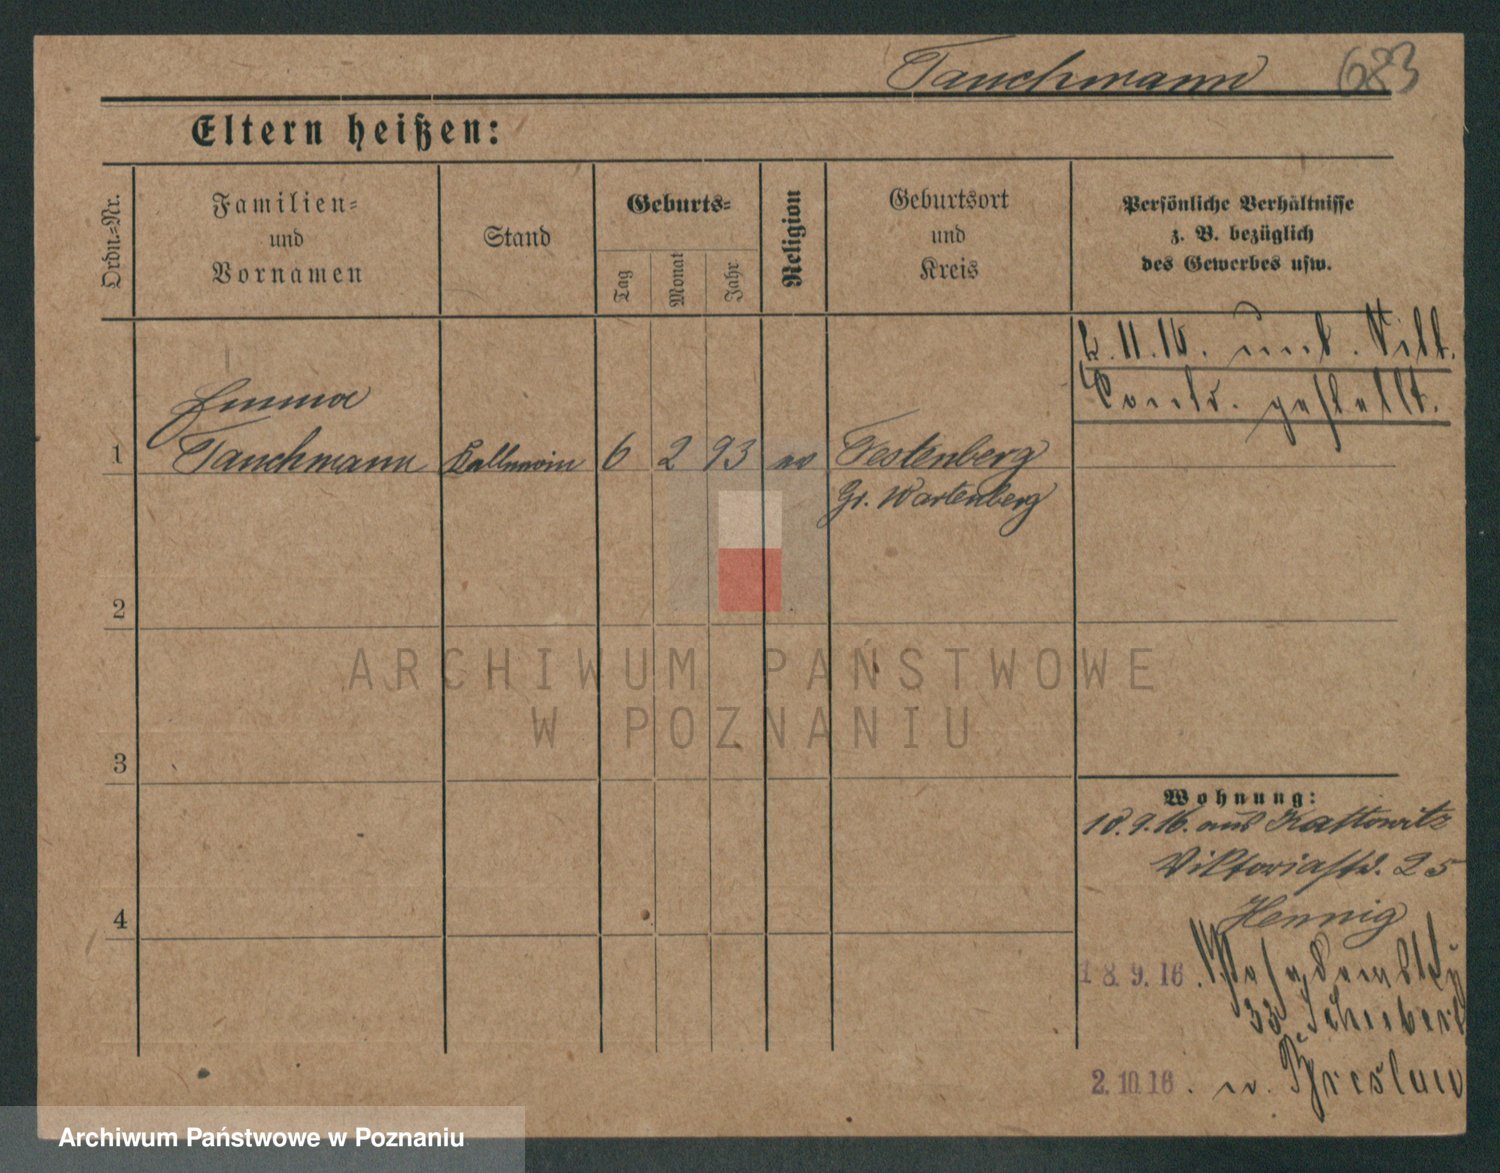 Tauchmann 683
Eltern heißen:
Ordn.-Nr.
Familien-
und
Vornamen
Stand
Geburts-
Tag
Monat
Jahr
Religion
Geburtsort
und
Kreis
Persönliche Verhältnisse
z. B. bezüglich
des Gewerbes usw.
gestellt.
Emma
1 Tauchmann Kellnerin 6 2 93 ev Festenberg
Gr. Wartenberg
2
3
4
Wohnung:
10.9.16. aus Kattowitz
Viktoriastr. 25
Hennig
18.9.16.
33 Schubert
2.10.16. n. Breslau
ARCHIWUM PAŃSTWOWE
W POZNANIU
Archiwum Państwowe w Poznaniu